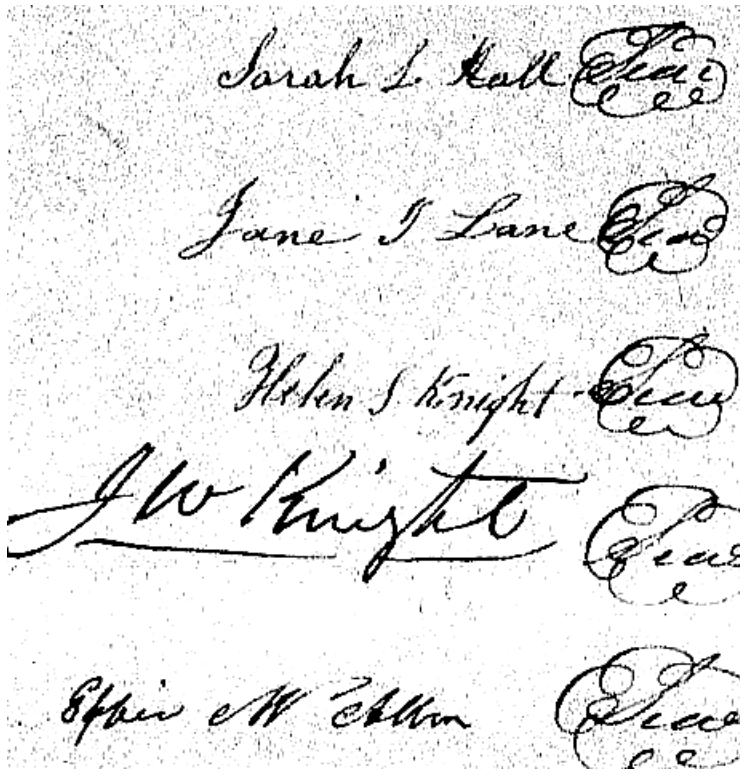 Sarah L Hall Seal
Jane T Lane Seal
Helen S Knight Seal
J W Knight Seal
Effie M Seal